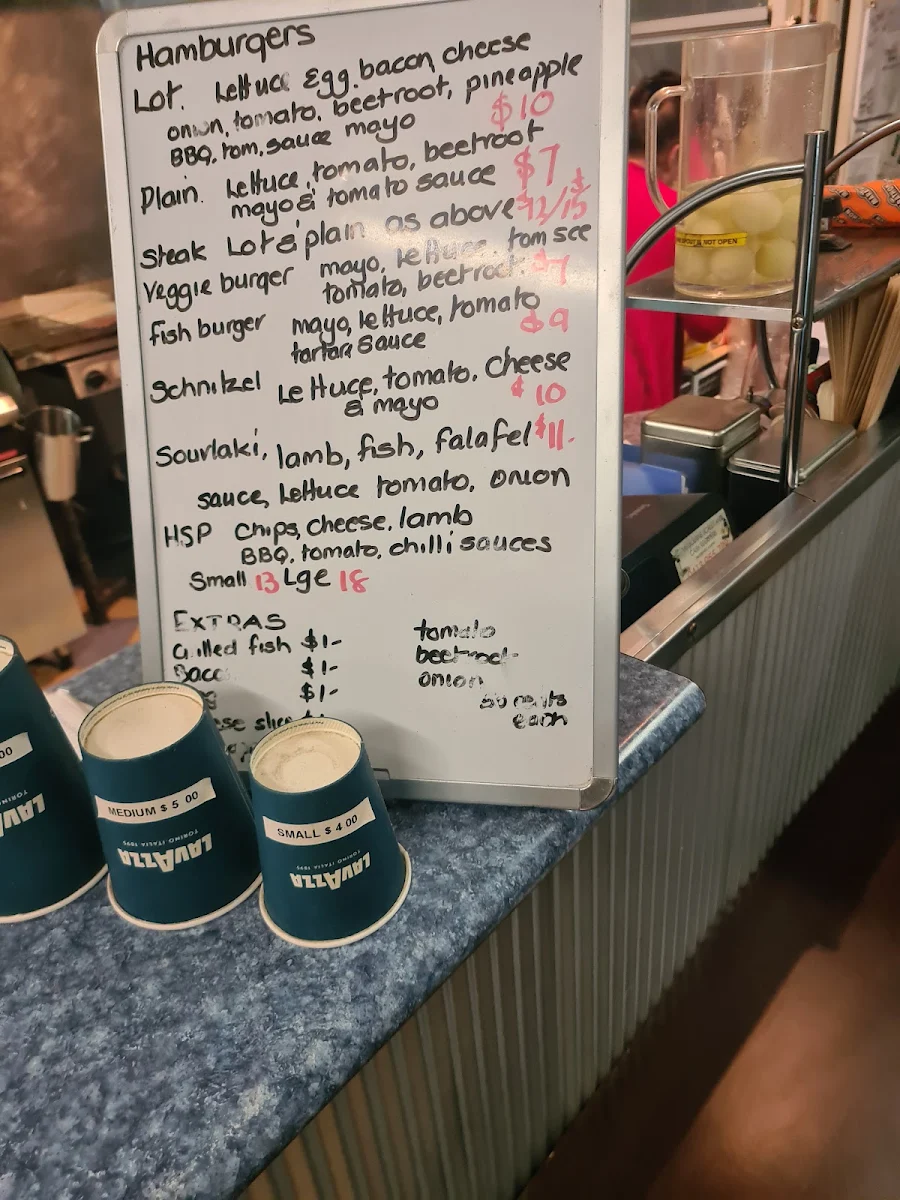 Hamburgers
Lot. Lettuce Egg, bacon, cheese
onion, tomato, beetroot, pineapple
BBQ, tom, sauce mayo $10
Plain. Lettuce, tomato, beetroot
mayo & tomato sauce $7
Steak Lot & plain as above $12/$15
Veggie burger mayo, lettuce, tom sce
tomato, beetroot. $7
fish burger mayo, lettuce, tomato
tartare sauce $9
Schnitzel Lettuce, tomato, cheese
& mayo $10
Sourlaki, lamb, fish, falafel $11.
sauce, lettuce tomato, onion
HSP Chips, cheese, lamb
BBQ, tomato, chilli sauces
Small 13 Lge 18
EXTRAS
Grilled fish $1-
Baco
$1-
$1-
ese slice
tomato
beetroot
onion
50 cents
each
00
LAVAZZA
TORINO
MEDIUM $ 5 00
LAVAZZA
TORINO, ITALIA, 1895
SMALL $ 4 00
LAVAZZA
TORINO, ITALIA, 1895
SPOUT IS NOT OPEN